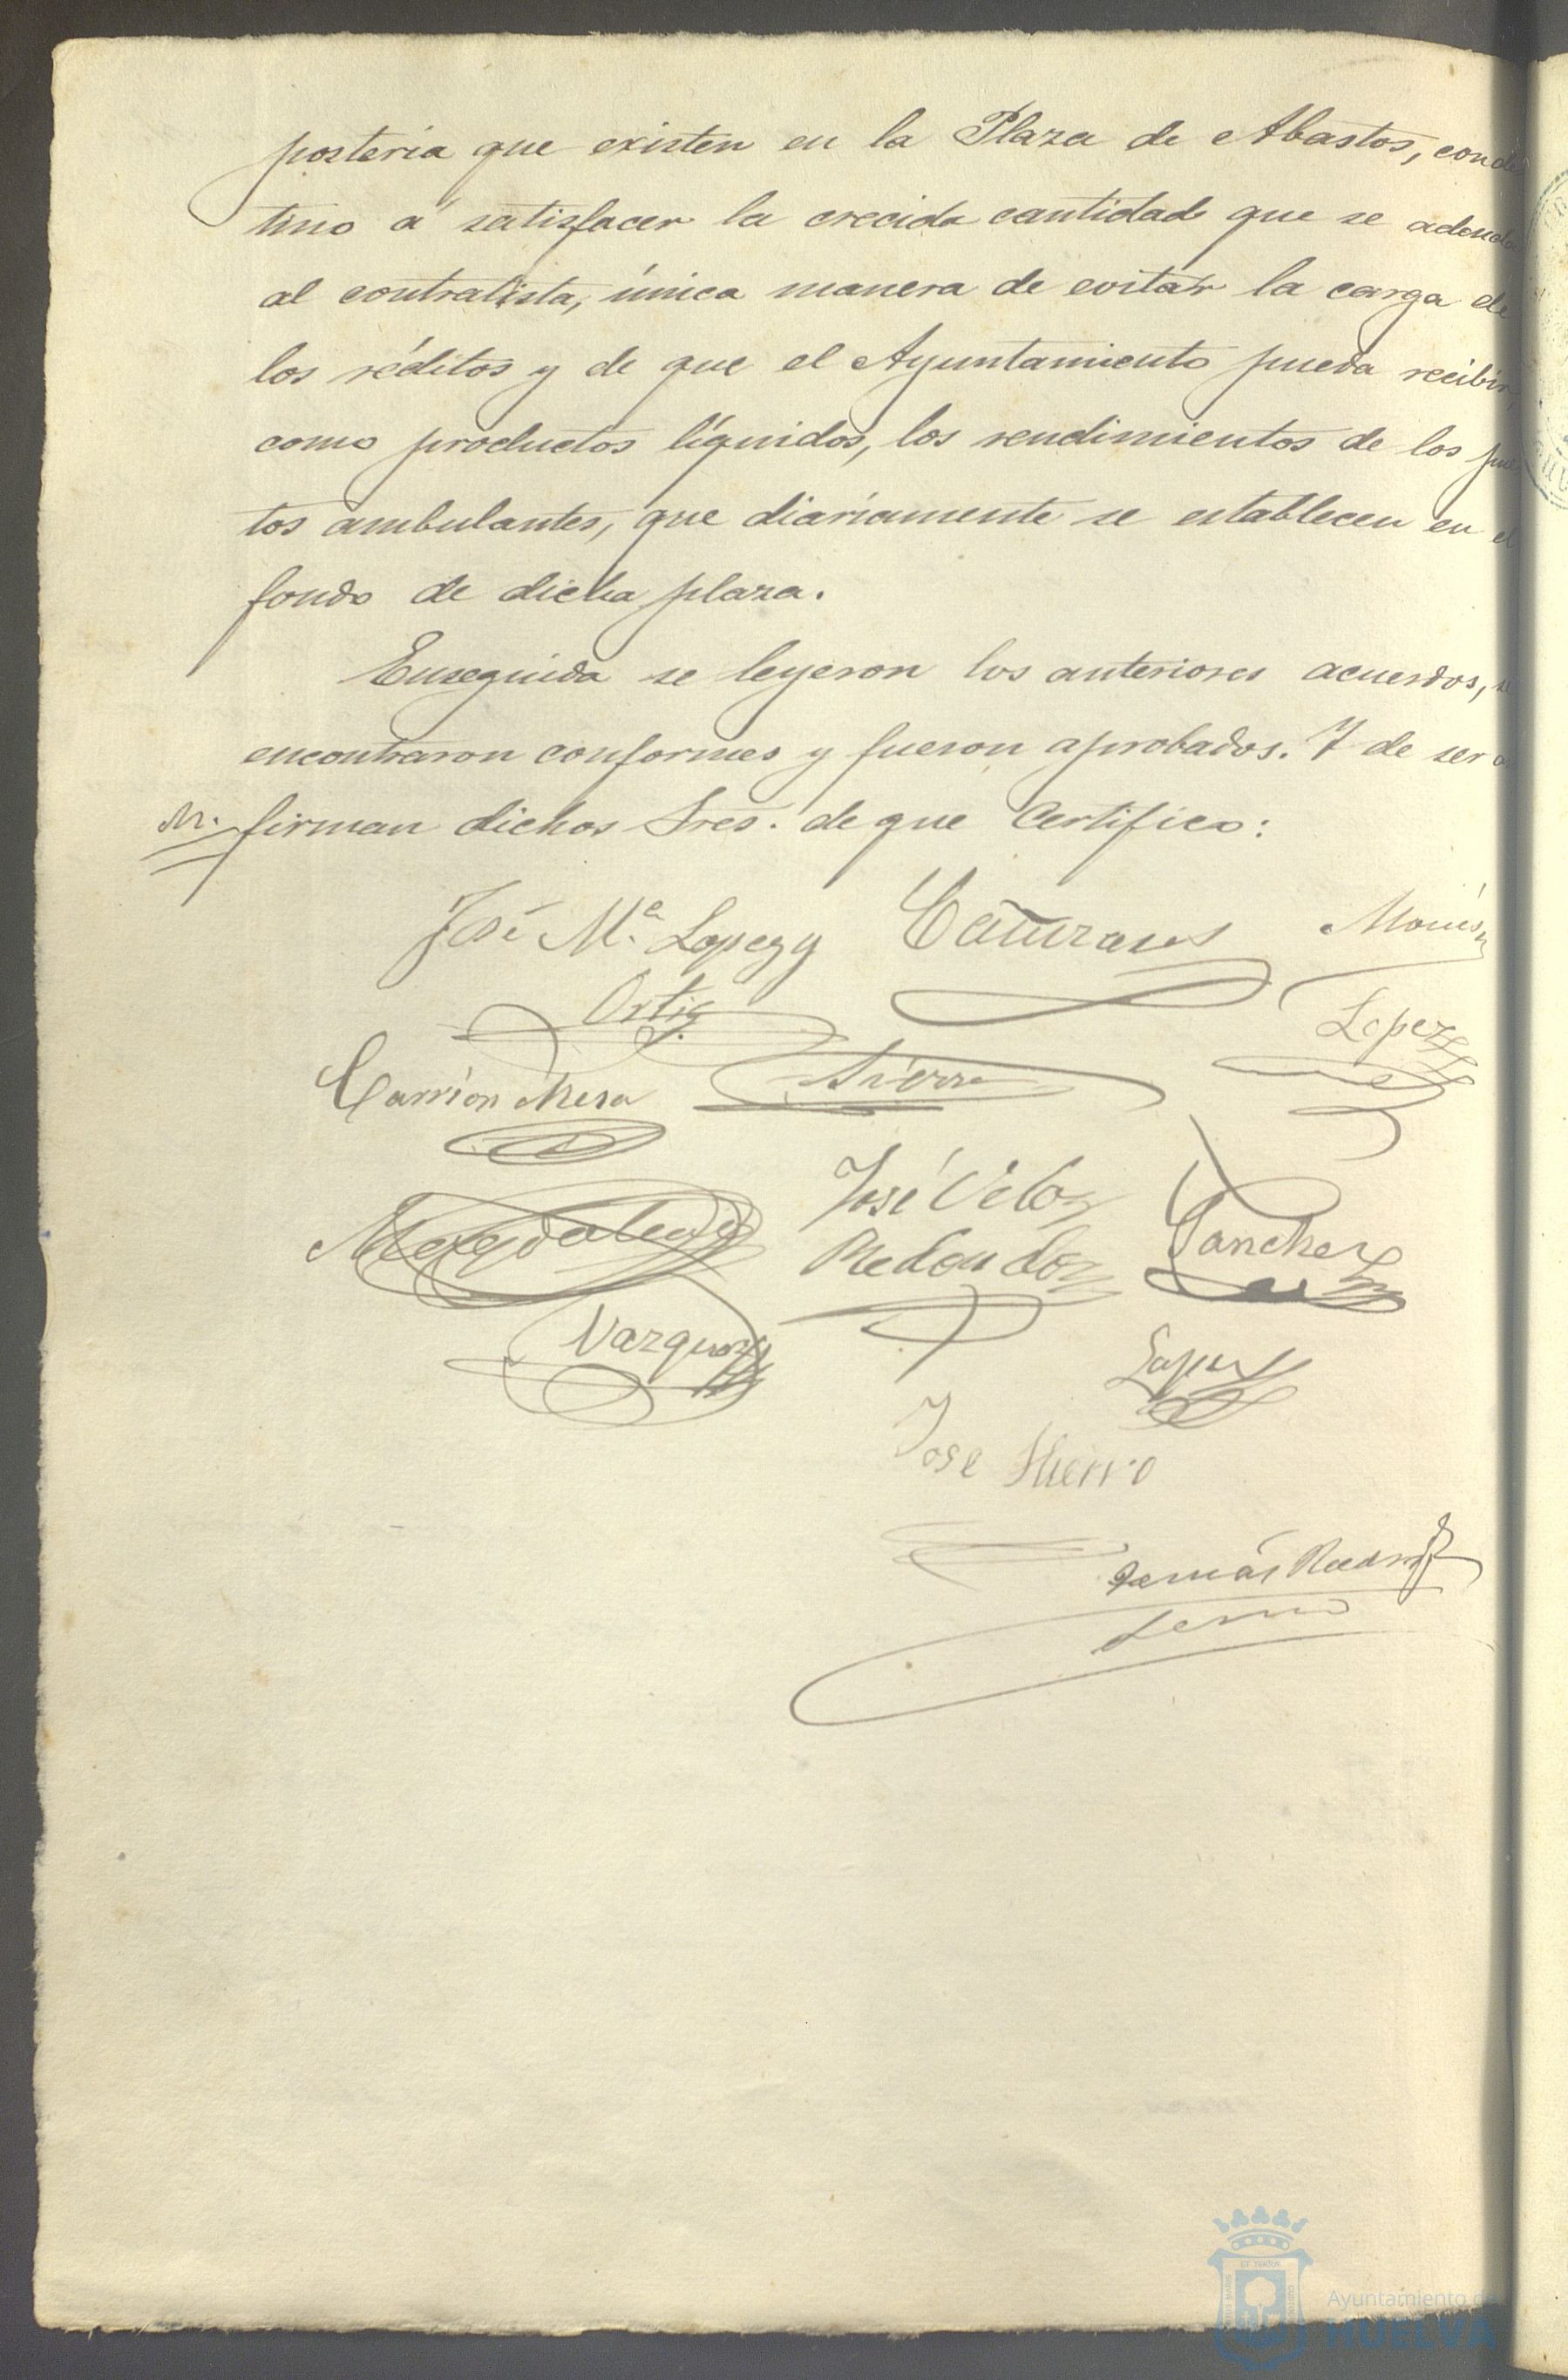 posteria que existen en la Plaza de Abastos, con de
tino á satisfacer la crecida cantidad que se adeuda
al contratista, única manera de evitar la carga de
los réditos y de que el Ayuntamiento pueda recibir,
como productos líquidos, los rendimientos de los pue
tos ambulantes, que diariamente se establecen en el
fondo de dicha plaza.
Enseguida se leyeron los anteriores acuerdos, se
encontraron conformes y fueron aprobados. Y de ser a
M. firman dichos Sres. de que Certifico:
José Mª Lopez y
Ortiz
Lopez
Carrion Mesa
Sierra
José Veloz
Redondo
Sanchez
Vazquez
Lopez
José Hierro
Tomás
Ayuntamiento de
HUELVA